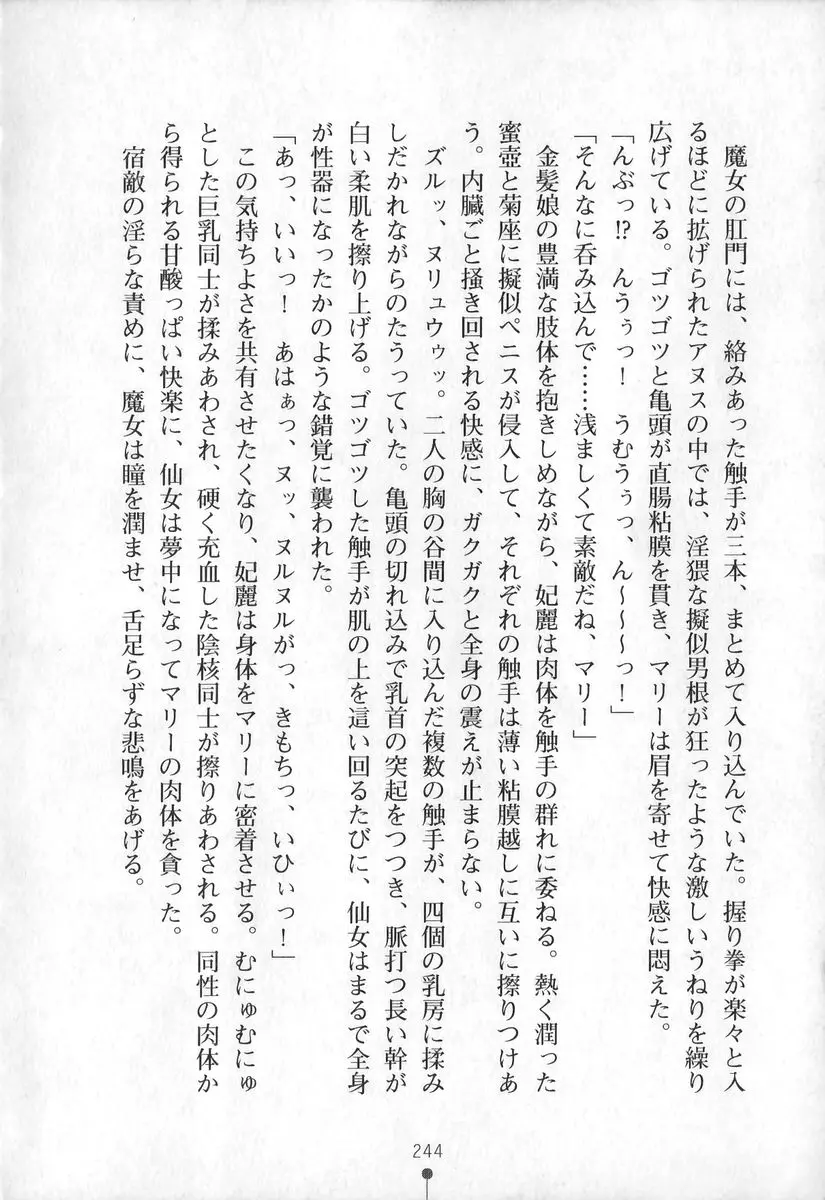 魔女の肛門には、絡みあった触手が三本、まとめて入り込んでいた。握り拳が楽々と入
るほどに拡げられたアヌスの中では、淫猥な擬似男根が狂ったような激しいうねりを繰り
広げている。ゴツゴツと亀頭が直腸粘膜を貫き、マリーは眉を寄せて快感に悶えた。
「んぶっ!? んうぅっ！ うむうぅっ、ん～～～っ！」
「そんなに呑み込んで……浅ましくて素敵だね、マリー」
金髪娘の豊満な肢体を抱きしめながら、妃麗は肉体を触手の群れに委ねる。熱く潤った
蜜壺と菊座に擬似ペニスが侵入して、それぞれの触手は薄い粘膜越しに互いに擦りつけあ
う。内臓ごと掻き回される快感に、ガクガクと全身の震えが止まらない。
ズルッ、ヌリュウゥッ。二人の胸の谷間に入り込んだ複数の触手が、四個の乳房に揉み
しだかれながらのたうっていた。亀頭の切れ込みで乳首の突起をつつき、脈打つ長い幹が
白い柔肌を擦り上げる。ゴツゴツした触手が肌の上を這い回るたびに、仙女はまるで全身
が性器になったかのような錯覚に襲われた。
「あっ、いいっ！ あはぁっ、ヌッ、ヌルヌルがっ、きもちっ、いひぃっ！」
この気持ちよさを共有させたくなり、妃麗は身体をマリーに密着させる。むにゅむにゅ
とした巨乳同士が揉みあわされ、硬く充血した陰核同士が擦りあわされる。同性の肉体か
ら得られる甘酸っぱい快楽に、仙女は夢中になってマリーの肉体を貪った。
宿敵の淫らな責めに、魔女は瞳を潤ませ、舌足らずな悲鳴をあげる。
244